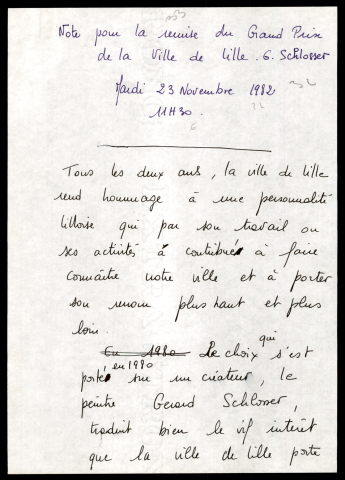 Note pour la remise du Grand Prix
de la Ville de Lille. G. Schlosser
Mardi 23 Novembre 1982
11H30.
Tous les deux ans, la ville de Lille
rend hommage à une personnalité
lilloise qui par son travail ou
ses activités à contribué à faire
connaître notre ville et à porter
son renom plus haut et plus
loin.
En 1980 Le choix qui s'est
porté en 1980 sur un créateur, le
peintre Gerard Schlosser,
traduit bien le vif intérêt
que la ville de Lille porte